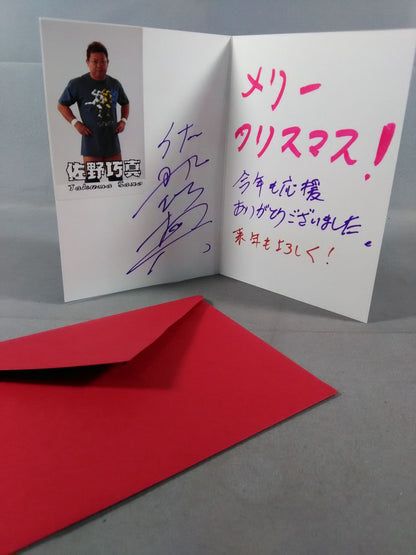 佐野巧真
Takuma Sano
佐野巧真
メリー
クリスマス!
今年も応援
ありがとうございました。
来年もよろしく!